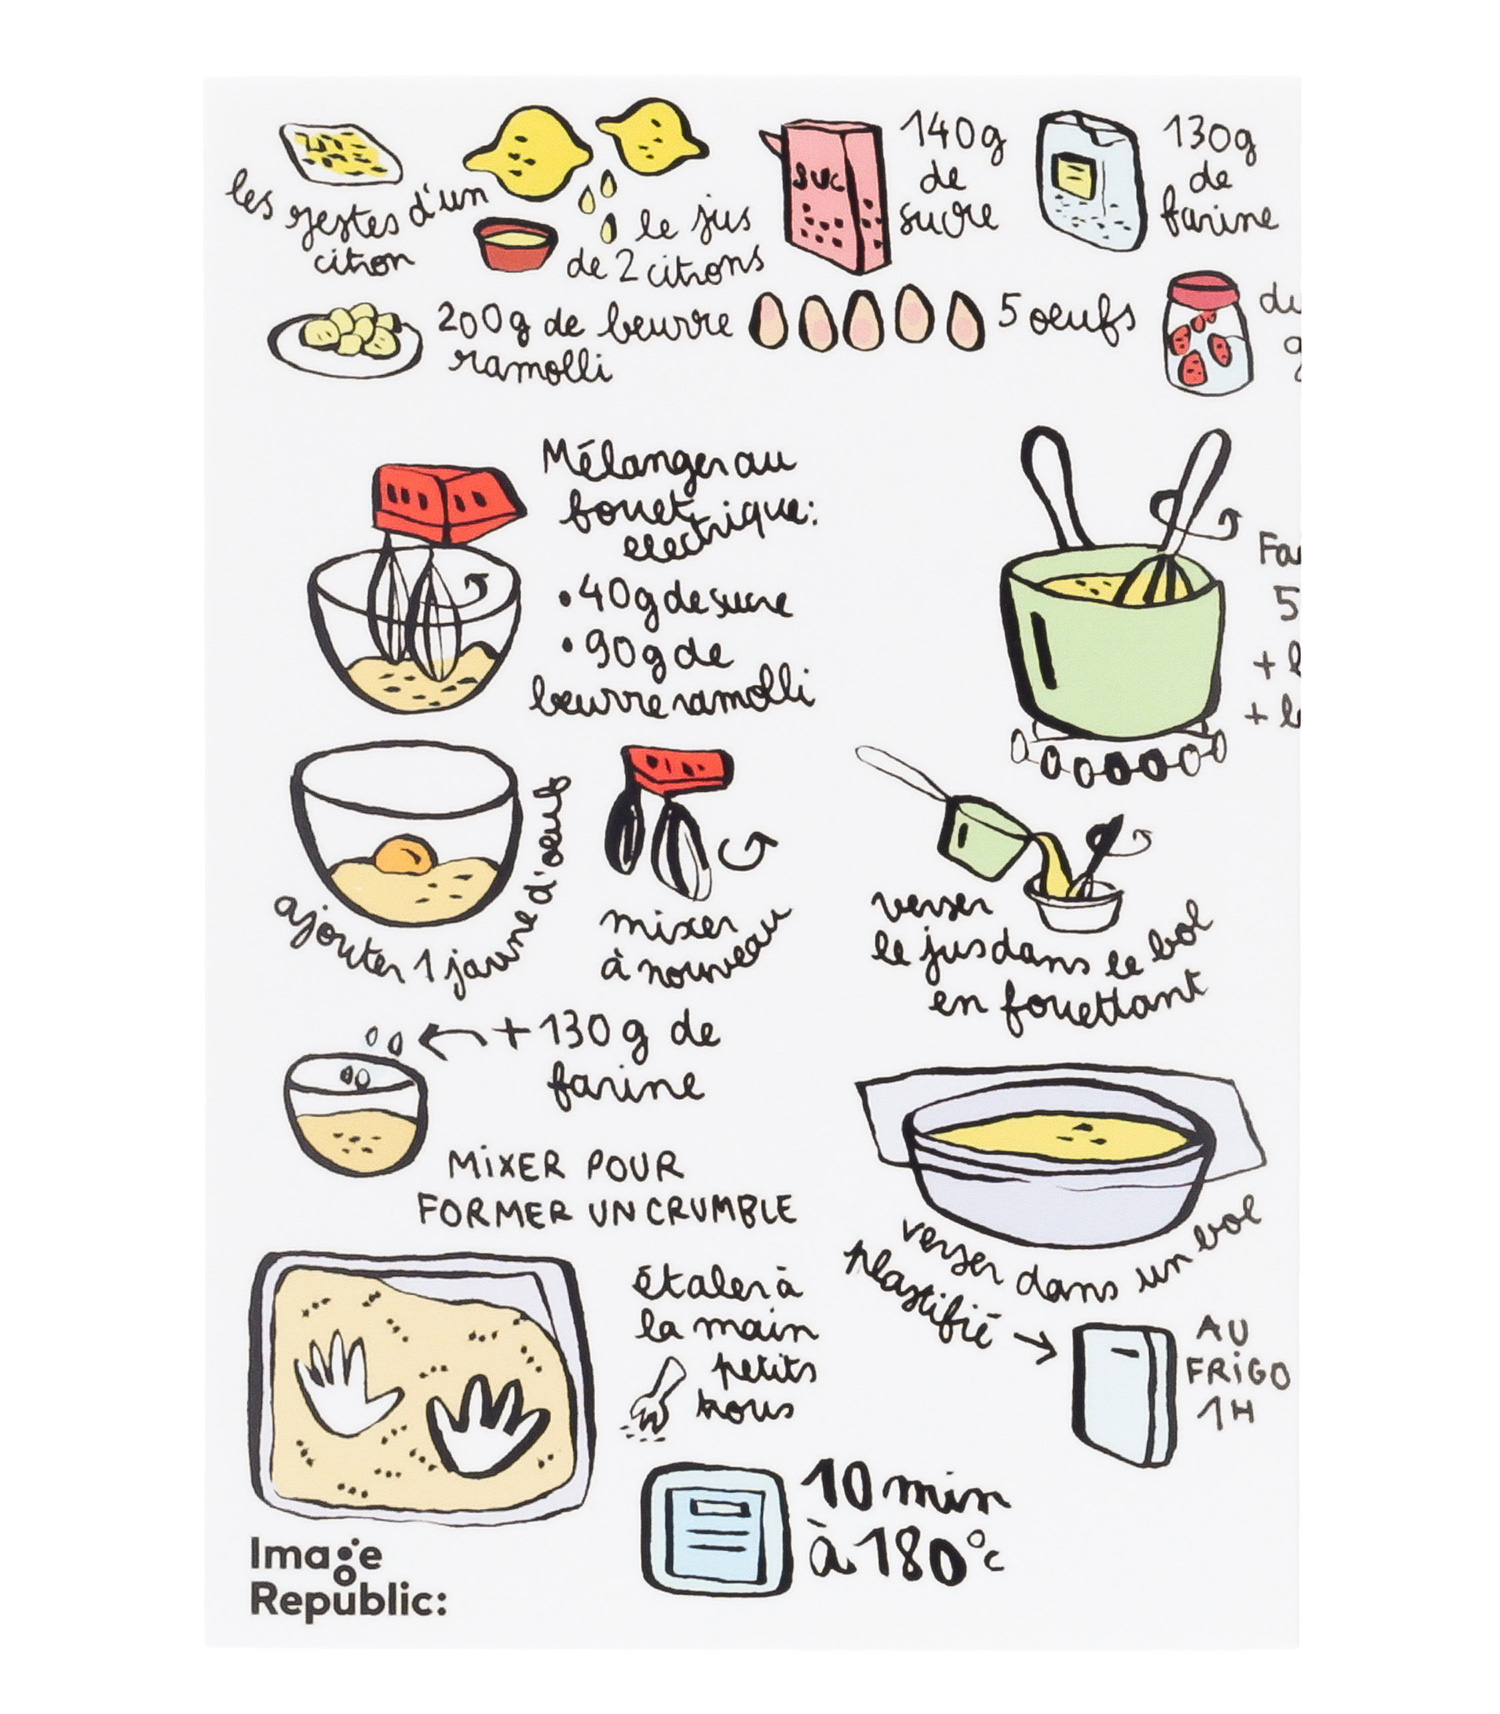 les zestes d'un
citron
le jus
de 2 citrons
SUC
140g
de
sucre
130g
de
farine
200g de beurre
ramolli
5 oeufs
du
g
Mélanger au
fouet
electrique:
• 40g de sucre
• 90g de
beurre ramolli
Fa
5
+ l
+ le
ajouter 1 jaune d'oeuf
mixer
à nouveau
verser
le jus dans le bol
en fouettant
+ 130 g de
farine
MIXER POUR
FORMER UN CRUMBLE
verser dans un bol
plastifié →
AU
FRIGO
1H
étaler à
la main
petits
trous
10 min
à 180°c
Image
Republic: